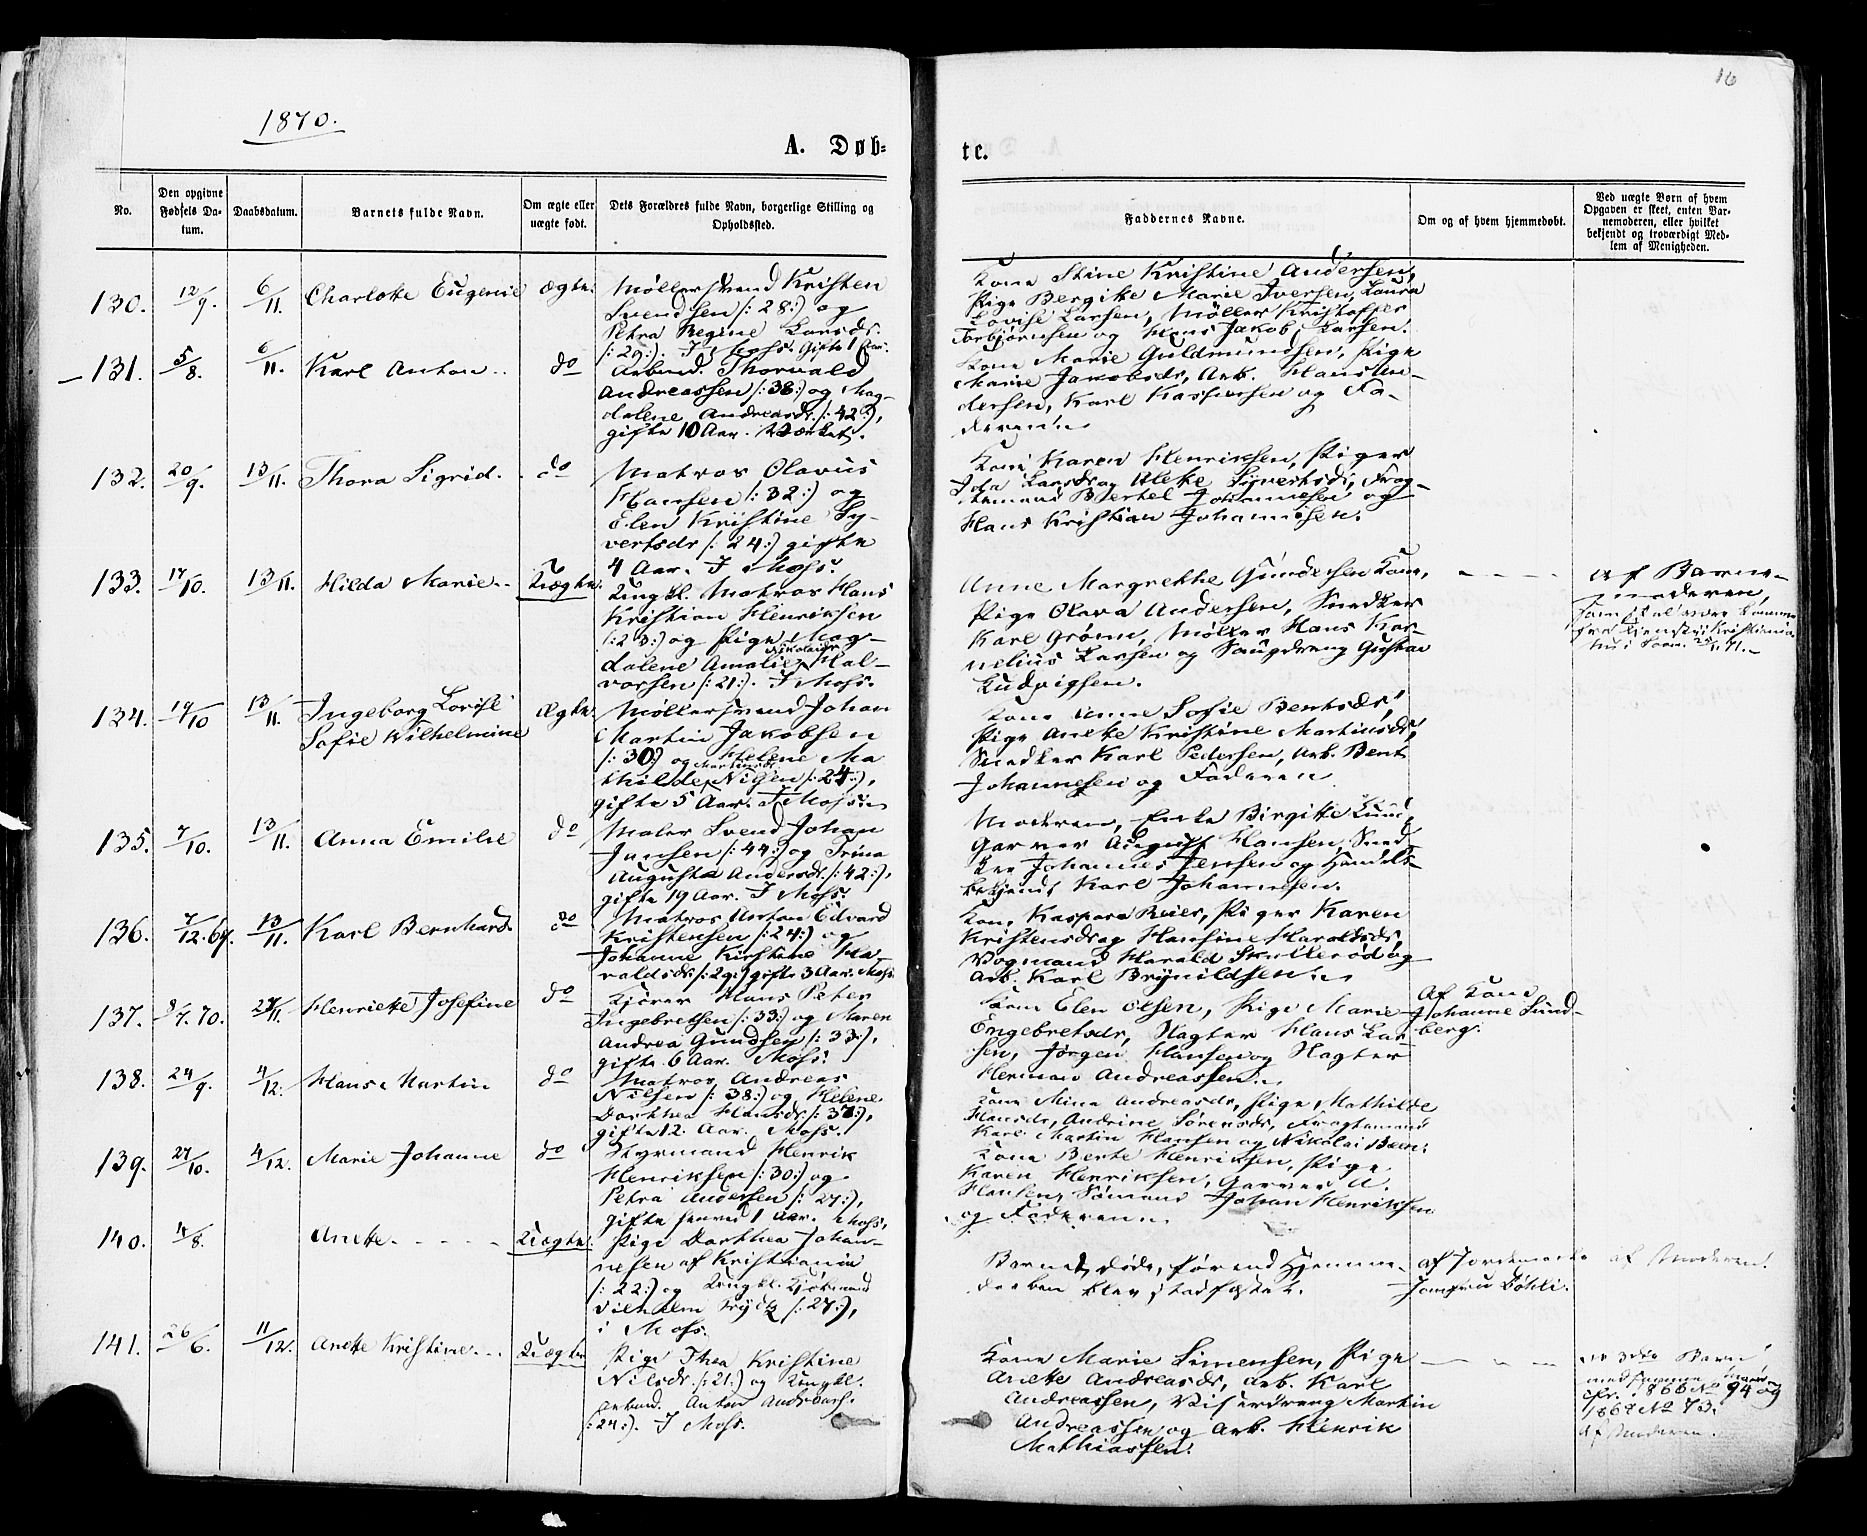 16
1870.
A. Døb-
te.
No.
Den opgivne Fødsels Da-tum.
Daabsdatum.
Barnets fulde Navn.
Om ægte eller uægte født.
Dets Forældres fulde Navn, borgerlige Stilling og Opholdssted.
Faddernes Navne.
Om og af hvem hjemmedøbt.
Ved uægte Børn af hvem Opgaven er skeet, enten Bar-nemoderen, eller hvilket bekjendt og troværdigt Med-lem af Menigheden.
130. 12/9. 6/11. Charlotte Eugenie ægte.
Møllersvend Kristen
Svendsen /: 28 :/ og
Petra Regine Larsdr.
/: 29 :/. I Moss. Gifte 1 Aar.
Kone Stine Kristine Andersen,
Pige Bergitte Marie Iversen, Laura
Lovise Larsen, Møller Kristoffer
Torbjørnsen og Hans Jakob Larsen.
131. 5/8. 6/11. Karl Anton do
Arbmd. Thorvald
Andreassen /: 38 :/ og Mag-
dalene Andreasdr. /: 42 :/,
gifte 10 Aar. Værket.
Kone Marie Guldmundsen, Pige
Marie Jakobsdr, Arb. Hans An-
dersen, Karl Kaspersen og Fa-
deren.
132. 20/9. 13/11. Thora Sigrid. do
Matros Olavus
Hansen /: 32 :/ og
Elen Kristine Sy-
vertsdr /: 24 :/ gifte
4 Aar. I Moss.
Kone Karen Henriksen, Piger
Larsdr og Aleke Sivertsdr, Frag-
temand Bertel Johannesen og
Hans Kristian Johannesen.
133. 17/10. 13/11. Hilda Marie Uægte.
Ungkl. Matros Hans
Kristian Henriksen
/: 23 :/ og Pige Mag-
dalene Amalie Nikolaidr Hal-
vorsen /: 21 :/. I Moss.
Anne Margrethe Gundersen Kone,
Pige Olava Andersen, Snedker
Karl Grønn, Møller Hans Kor-
nelius Larsen og Saugdreng Gustav
Ludvigsen.
Af Barne-
moderen,
som skal være kommen
fra Tjeneste i Kristiania
134. 14/10 13/11. Ingeborg Lovise
Sofie Wilhelmine ægte.
Møllersvend Johan
Martin Jakobsen
/: 30 :/ og Helene Ma
thilde Martinsdr. Nigen /: 24 :/,
gifte 5 Aar. I Moss.
Kone Anne Sofie Bentsdr,
Pige Anette Kristine Martinsdr,
Snedker Karl Pedersen, Arb. Bent
Johannesen og Faderen.
135. 7/10. 13/11. Anna Emilie do
Maler Svend Johan
Jansen /: 44 :/ og Trina
Augusta Andersdr. /: 42 :/,
gifte 19 Aar. I Moss.
Moderen, Enke Birgitte Lund,
Garver August Hansen, Sned-
ker Johannes Jensen og Handels-
betjent Karl Johannesen.
136. 7/12.69. 13/11. Karl Bernhard. do
Matros Anton Edvard
Kristensen /: 24 :/ og
Johanne Kirstine Ha-
raldsdr /: 29 :/ gifte 3 Aar. Moss
Kone Kaspara Reier, Piger Karen
Kristensdr og Hansine Haraldsdr,
Vognmand Harald Skullerød og
Arb. Karl Brynildsen.
137. 8/7.70. 27/11. Henriette Josefine do
Kjører Hans Peter
Ingebretsen /: 33 :/ og Maren
Andrea Gundsen /: 33 :/,
gifte 6 Aar. Moss.
Kone Elen Olsen, Pige Marie
Engebretsdr, Slagter Hans Lar-
sen, Jørgen Hansen og Slagter
Herman Andreassen.
Af Kone
Johanne Sund-
berg.
138. 24/9. 4/12. Hans Martin do
Matros Andreas
Nilsen /: 38 :/ og Helene
Dorthea Hansdr /: 37 :/,
gifte 12 Aar. Moss.
Kone Mina Andreasdr, Pige Mathilde
Hansdr, Andrine Sørensdr, Fragtemand
Karl Martin Hansen og Nikolai
139. 27/10. 4/12. Marie Johanne do
Styrmand Henrik
Henriksen /: 30 :/ og
Petra Andersen /: 27 :/,
gifte henved 1 Aar. Moss.
Kone Berte Henriksen, Pige
Karen Henriksen, Garver A.
Hansen, Sømand Johan Henriksen
og Faderen.
140. 4/8. Anette. Uægte.
Pige Dorthea Johan-
nesen af Kristiania
/: 22 :/ og Ungkl.
Vilhelm /: 27 :/,
i Moss.
Barnet døde, førend Hjemme-
daaben blev stadfæstet.
af Jordemoder
Jomfru Bøhli.
af Moderen.
141. 26/6. 11/12. Anette Kristine Uægte
Pige Thea Kristine
Nilsdr. /: 21 :/ og Ungkl.
Arbmd. Anton Andreass.
/: 24 :/. I Moss.
Kone Marie Simensen, Pige
Anette Andreasdr, Arb. Karl
Andreassen, Viserdreng Martin
Andreassen og Arb. Henrik
Mathiassen.
3die Barn
med samme Mand
cfr. 1866 No 94 og
1868 No 73.
af Moderen.